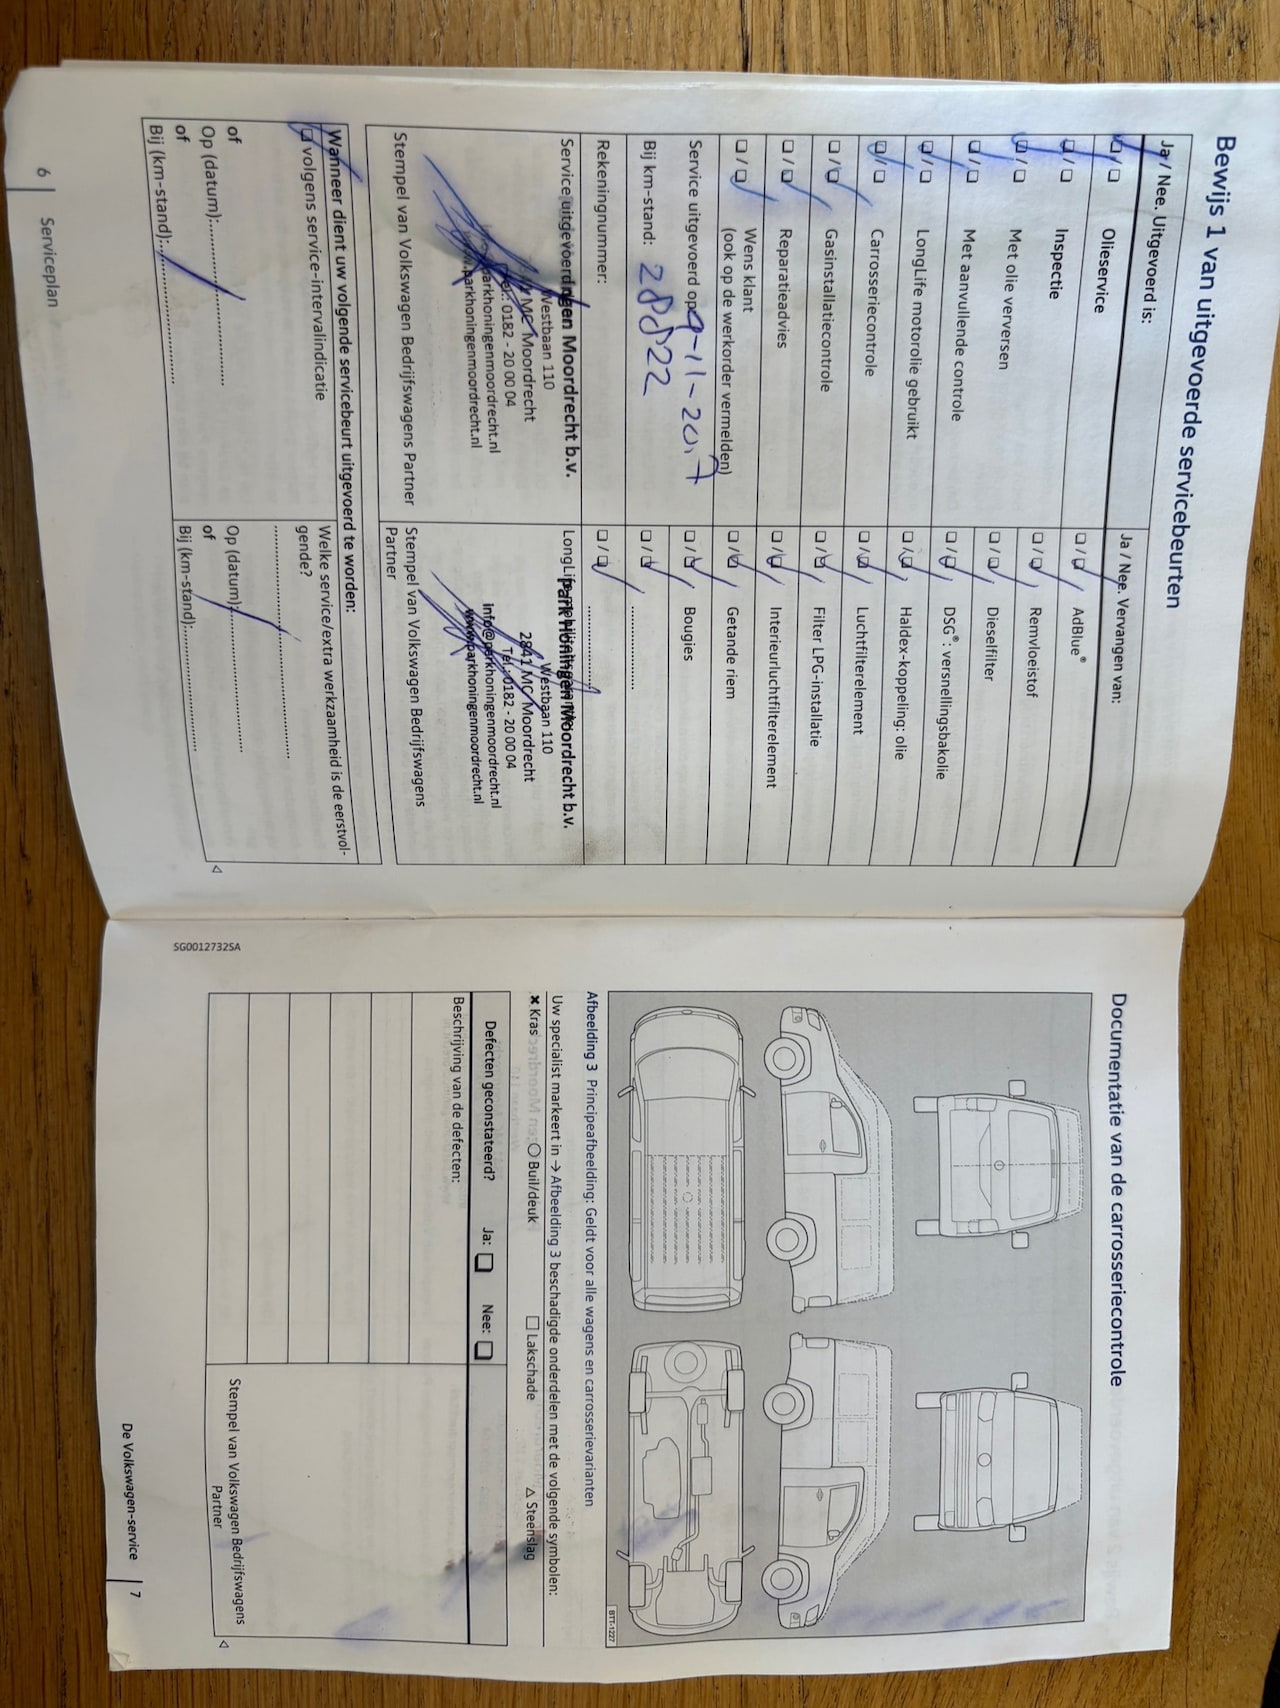 Bewijs 1 van uitgevoerde servicebeurten
Ja / Nee. Uitgevoerd is:
Olieservice
Inspectie
Met olie verversen
Met aanvullende controle
LongLife motorolie gebruikt
Carrosseriecontrole
Gasinstallatiecontrole
Reparatieadvies
Wens klant
(ook op de werkorder vermelden)
Service uitgevoerd op 9-11-2017
Bij km-stand: 28822
Rekeningnummer:
Service uitgevoerd
Moordrecht b.v.
Westbaan 110
MC Moordrecht
Tel.: 0182 - 20 00 04
parkhoningenmoordrecht.nl
www.parkhoningenmoordrecht.nl
Stempel van Volkswagen Bedrijfswagens Partner
Ja / Nee. Vervangen van:
AdBlue®
Remvloeistof
Dieselfilter
DSG®: versnellingsbakolie
Haldex-koppeling: olie
Luchtfilterelement
Filter LPG-installatie
Interieurluchtfilterelement
Getande riem
Bougies
Park Honingen Moordrecht b.v.
Westbaan 110
2841 MC Moordrecht
Tel.: 0182 - 20 00 04
info@parkhoningenmoordrecht.nl
www.parkhoningenmoordrecht.nl
Stempel van Volkswagen Bedrijfswagens
Partner
Wanneer dient uw volgende servicebeurt uitgevoerd te worden:
volgens service-intervalindicatie
of
Op (datum):
of
Bij (km-stand):
Welke service/extra werkzaamheid is de eerstvol-
gende?
Op (datum):
of
Bij (km-stand):
6 Serviceplan
Documentatie van de carrosseriecontrole
BTT-1227
Afbeelding 3 Principeafbeelding: Geldt voor alle wagens en carrosserievarianten
Uw specialist markeert in → Afbeelding 3 beschadigde onderdelen met de volgende symbolen:
✖ Kras ○ Buil/deuk □ Lakschade △ Steenslag
Defecten geconstateerd? Ja: □ Nee: □
Beschrijving van de defecten:
Stempel van Volkswagen Bedrijfswagens
Partner
SG0012732SA
De Volkswagen-service 7